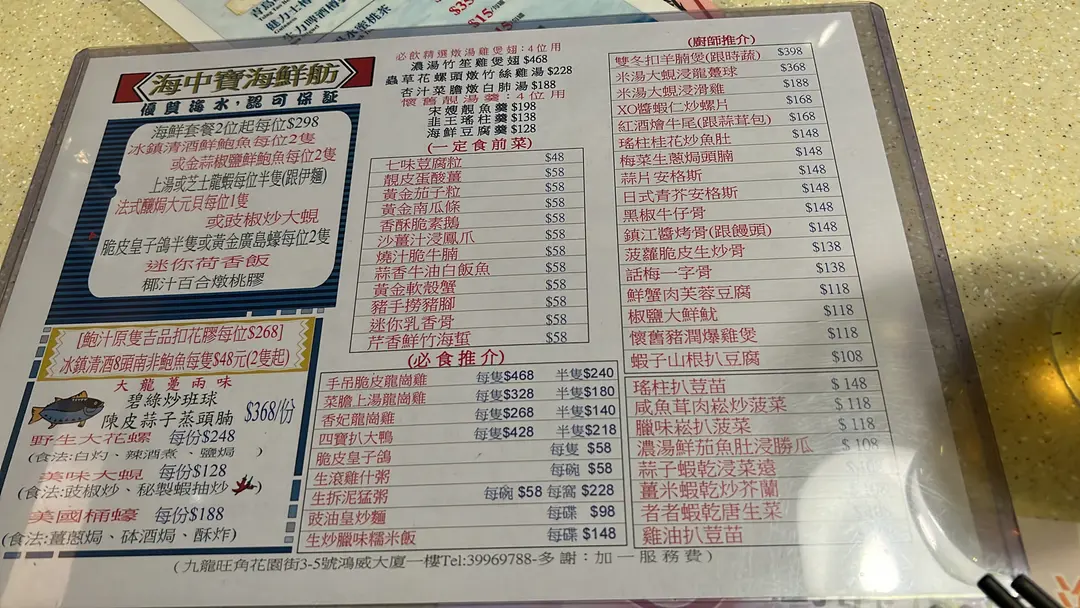 海中寶海鮮舫
優質海水,認可保証
海鮮套餐2位起每位$298
冰鎮清酒鮮鮑魚每位2隻
或金蒜椒鹽鮮鮑魚每位2隻
上湯或芝士龍蝦每位半隻(跟伊麵)
法式釀焗大元貝每位1隻
或豉椒炒大蜆
脆皮皇子鴿半隻或黃金廣島蠔每位2隻
迷你荷香飯
椰汁百合燉桃膠
[鮑汁原隻吉品扣花膠每位$268]
冰鎮清酒8頭南非鮑魚每隻$48元(2隻起)
大龍躉兩味
碧綠炒班球
陳皮蒜子蒸頭腩
$368/份
野生大花螺 每份$248
(食法:白灼、辣酒煮、鹽焗 )
美味大蜆 每份$128
(食法:豉椒炒、秘製蝦抽炒 )
美國桶蠔 每份$188
(食法:薑蔥焗、砵酒焗、酥炸)
必飲精選燉湯雞煲翅:4位用
濃湯竹笙雞煲翅$468
蟲草花螺頭燉竹絲雞湯$228
杏汁菜膽燉白肺湯$188
懷舊靚湯羹:4位用
宋嫂靚魚羹$198
韭王瑤柱羹$138
海鮮豆腐羹$128
(一定食前菜)
七味豆腐粒 $48
靚皮蛋酸薑 $58
黃金茄子粒 $58
黃金南瓜條 $58
香酥脆素鵝 $58
沙薑汁浸鳳爪 $58
燒汁脆牛腩 $58
蒜香牛油白飯魚 $58
黃金軟殼蟹 $58
豬手撈豬腳 $58
迷你乳香骨 $58
芹香鮮竹海蜇 $58
(必食推介)
手吊脆皮龍崗雞 每隻$468 半隻$240
菜膽上湯龍崗雞 每隻$328 半隻$180
香妃龍崗雞 每隻$268 半隻$140
四寶扒大鴨 每隻$428 半隻$218
脆皮皇子鴿 每隻 $58
生滾雞什粥 每碗 $58
生拆泥猛粥 每碗 $58 每窩 $228
豉油皇炒麵 每碟 $98
生炒臘味糯米飯 每碟 $148
(廚師推介)
雙冬扣羊腩煲(跟時蔬) $398
米湯大蜆浸龍躉球 $368
米湯大蜆浸滑雞 $188
XO醬蝦仁炒螺片 $168
紅酒燴牛尾(跟蒜茸包) $168
瑤柱桂花炒魚肚 $148
梅菜生蔥焗頭腩 $148
蒜片安格斯 $148
日式青芥安格斯 $148
黑椒牛仔骨 $148
鎮江醬烤骨(跟饅頭) $148
菠蘿脆皮生炒骨 $138
話梅一字骨 $138
鮮蟹肉芙蓉豆腐 $118
椒鹽大鮮魷 $118
懷舊豬潤爆雞煲 $118
蝦子山根扒豆腐 $108
瑤柱扒荳苗 $ 148
咸魚茸肉崧炒菠菜 $ 118
臘味崧扒菠菜 $ 118
濃湯鮮茄魚肚浸勝瓜 $ 108
蒜子蝦乾浸菜遠
薑米蝦乾炒芥蘭
者者蝦乾唐生菜
雞油扒荳苗
(九龍旺角花園街3-5號鴻威大廈一樓Tel:39969788-多謝:加一服務費)